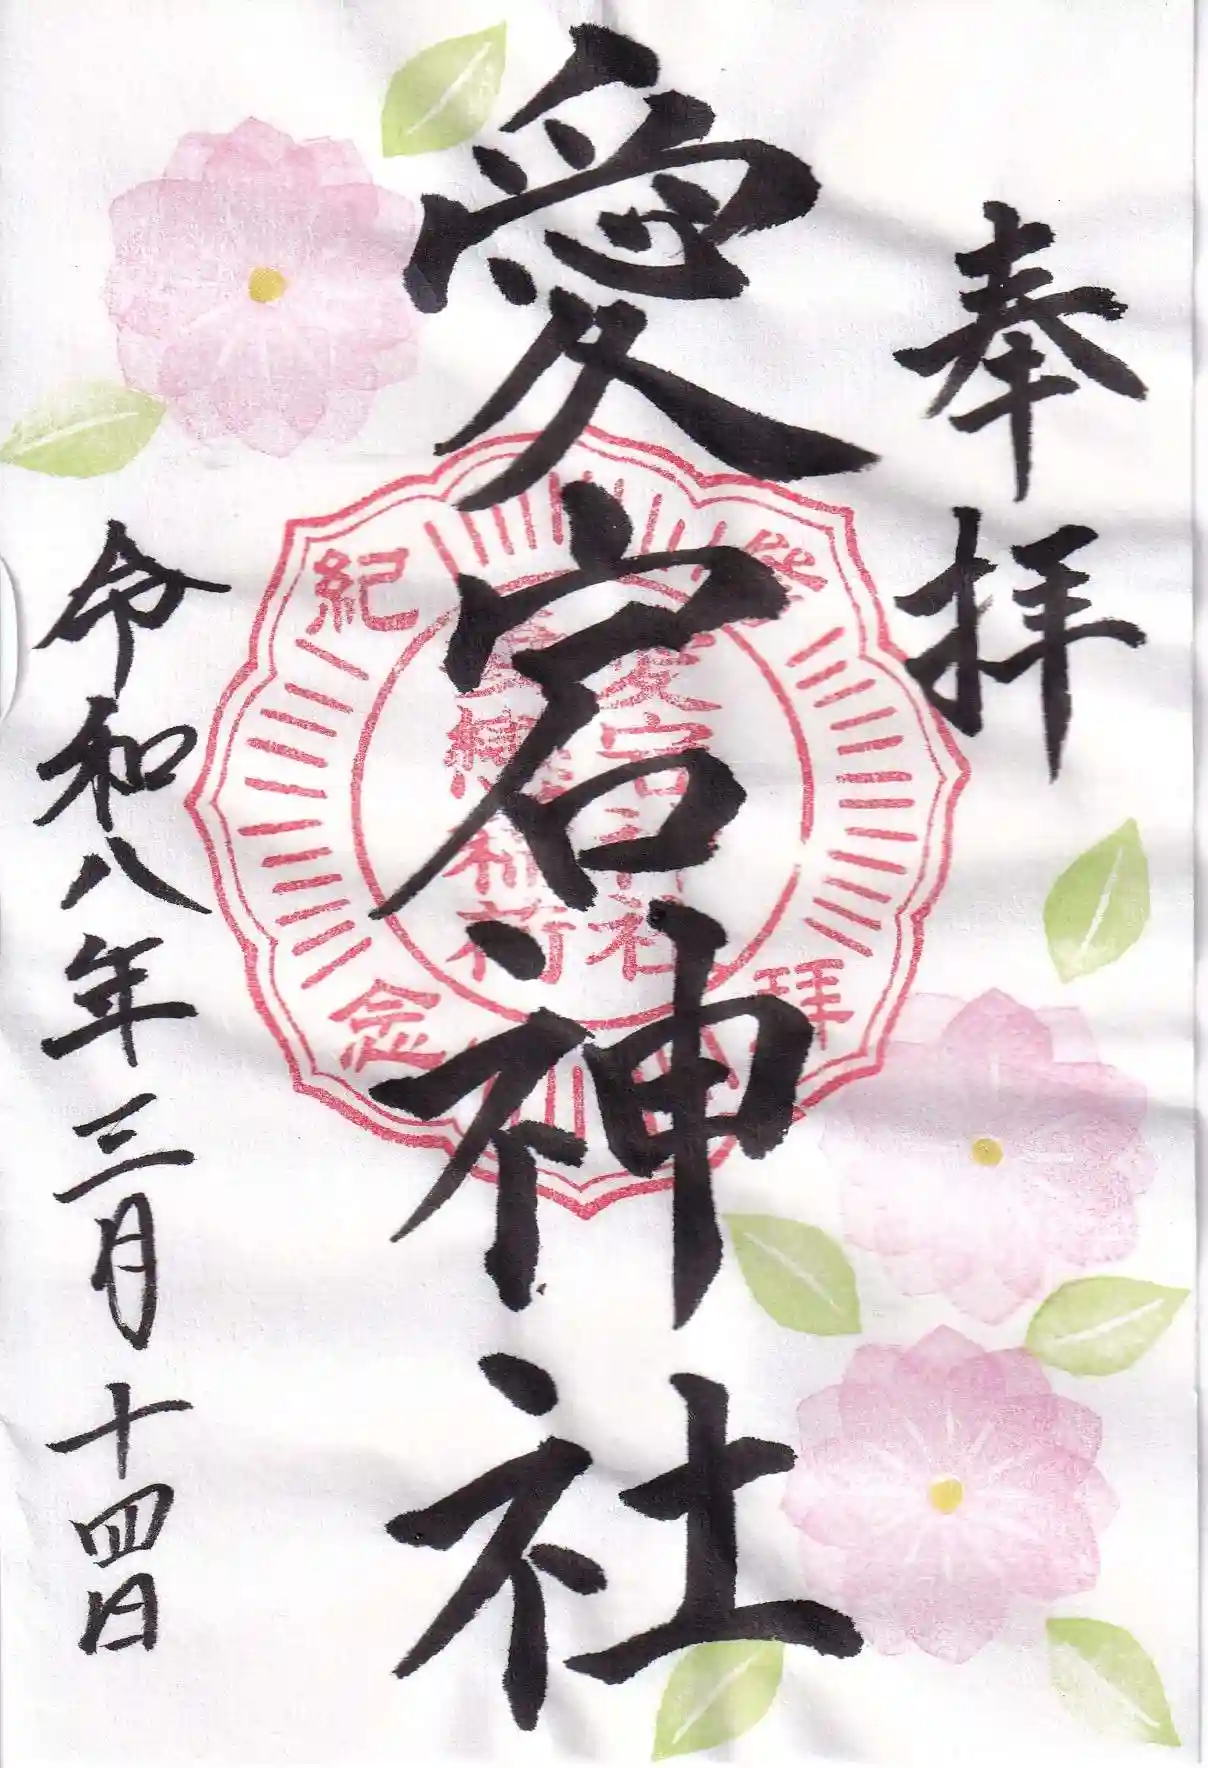 奉拝
愛宕神社
令和八年三月十四日
登拝
紀念
愛宕神社
稲荷